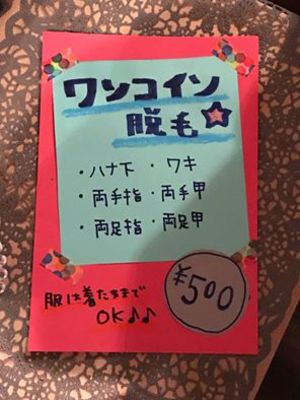 ワンコイン
脱毛☆
・ハナ下 ・ワキ
・両手指・両手甲
・両足指・両足甲
¥500
服は着たままで
OK♪♪